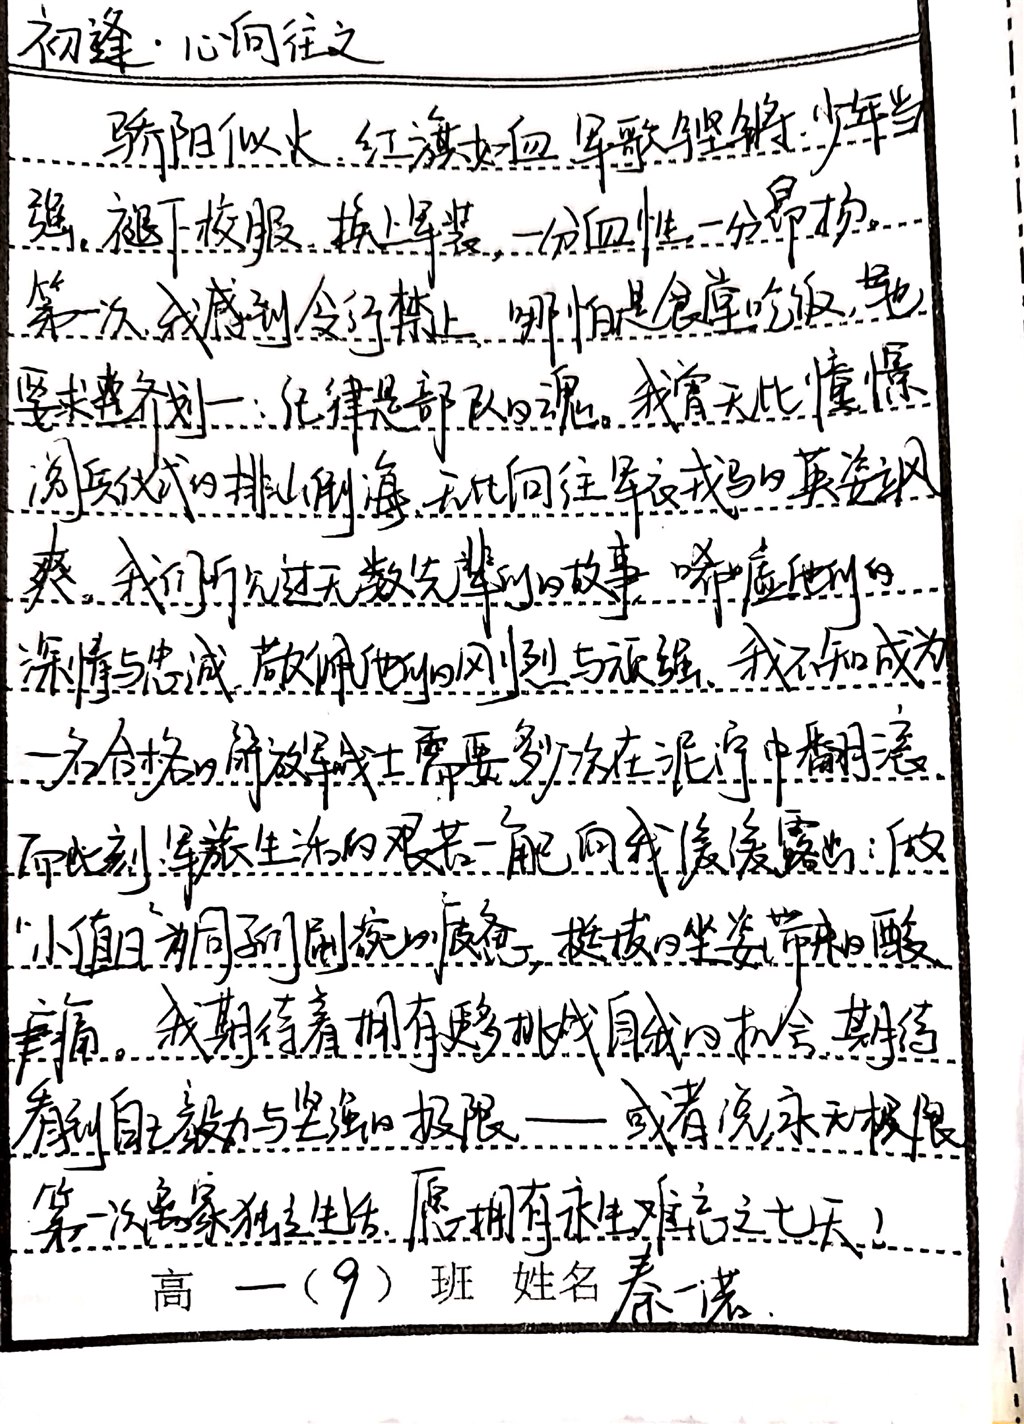 初逢·心向往之
骄阳似火,红旗如血,军歌铿锵,少年当
强。褪下校服,换上军装,一分血性,一分昂扬。
第一次,我感到令行禁止,哪怕是食堂吃饭,也
要求整齐划一:纪律是部队的魂。我曾无比憧憬
阅兵仪式的排山倒海,无比向往军衣戎马的英姿飒
爽。我们听说过无数先辈们的故事,唏嘘他们的
深情与忠诚,敬佩他们的刚烈与顽强。我不知成为
一名合格的解放军战士需要多少次在泥泞中翻滚,
而此刻,军旅生活的艰苦一角已向我缓缓露出:做
“小值日”为同学们刷碗的疲惫,挺拔的坐姿带来的酸
痛。我期待着拥有更多挑战自我的机会,期待
看到自己毅力与坚强的极限——或者说,永无极限
第一次离家独立生活,愿拥有永生难忘之七天!
高一(9)班 姓名 秦一诺.